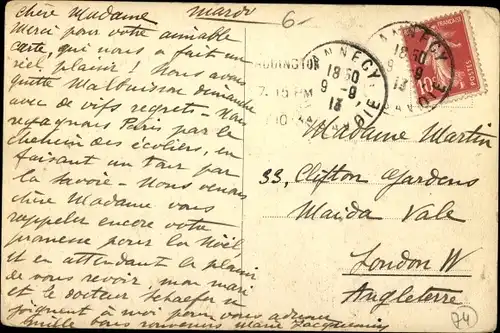 Chère Madame Mardi
Merci pour votre aimable
carte, qui nous a fait un
réel plaisir! Nous avons
quitté Malbuisson dimanche
avec de vifs regrets - Nous
regagnons Paris par le
chemin des écoliers, en
faisant un tour par
la Savoie - Nous venons
chère Madame vous
rappeler encore votre
promesse pour la Noël
et en attendant le plaisir
de vous revoir, mon mari
et le docteur Schaefer se
joignent à moi pour vous adresser
mille bons souvenirs Marie
6
ADDINGTON
7.15 PM
ANNECY
18 50
9 - 9
13
SAVOIE
ANNECY
18 50
9 - 9
13
SAVOIE
10
POSTES
Madame Martin
33, Clifton Gardens
Maida Vale
London W
Angleterre
74